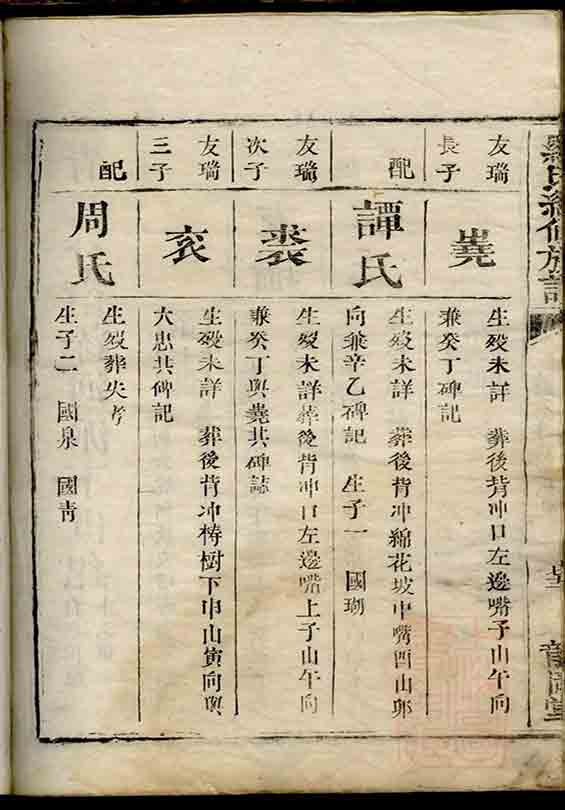 羅氏續修族譜
友瑞
長子
嶤
生殁未詳 葬後背冲口左邊嘴子山午向
兼癸丁碑記
配
譚氏
生殁未詳 葬後背冲綿花坡中嘴酉山卯
向兼辛乙碑記 生子一 國瑚
友瑞
次子
裘
生殁未詳葬後背冲口左邊嘴上子山午向
兼癸丁與嶤共碑誌
友瑞
三子
衮
生殁未詳 葬後背冲梼樹下申山寅向與
大忠共碑記
配
周氏
生殁葬失考
生子二 國泉 國青